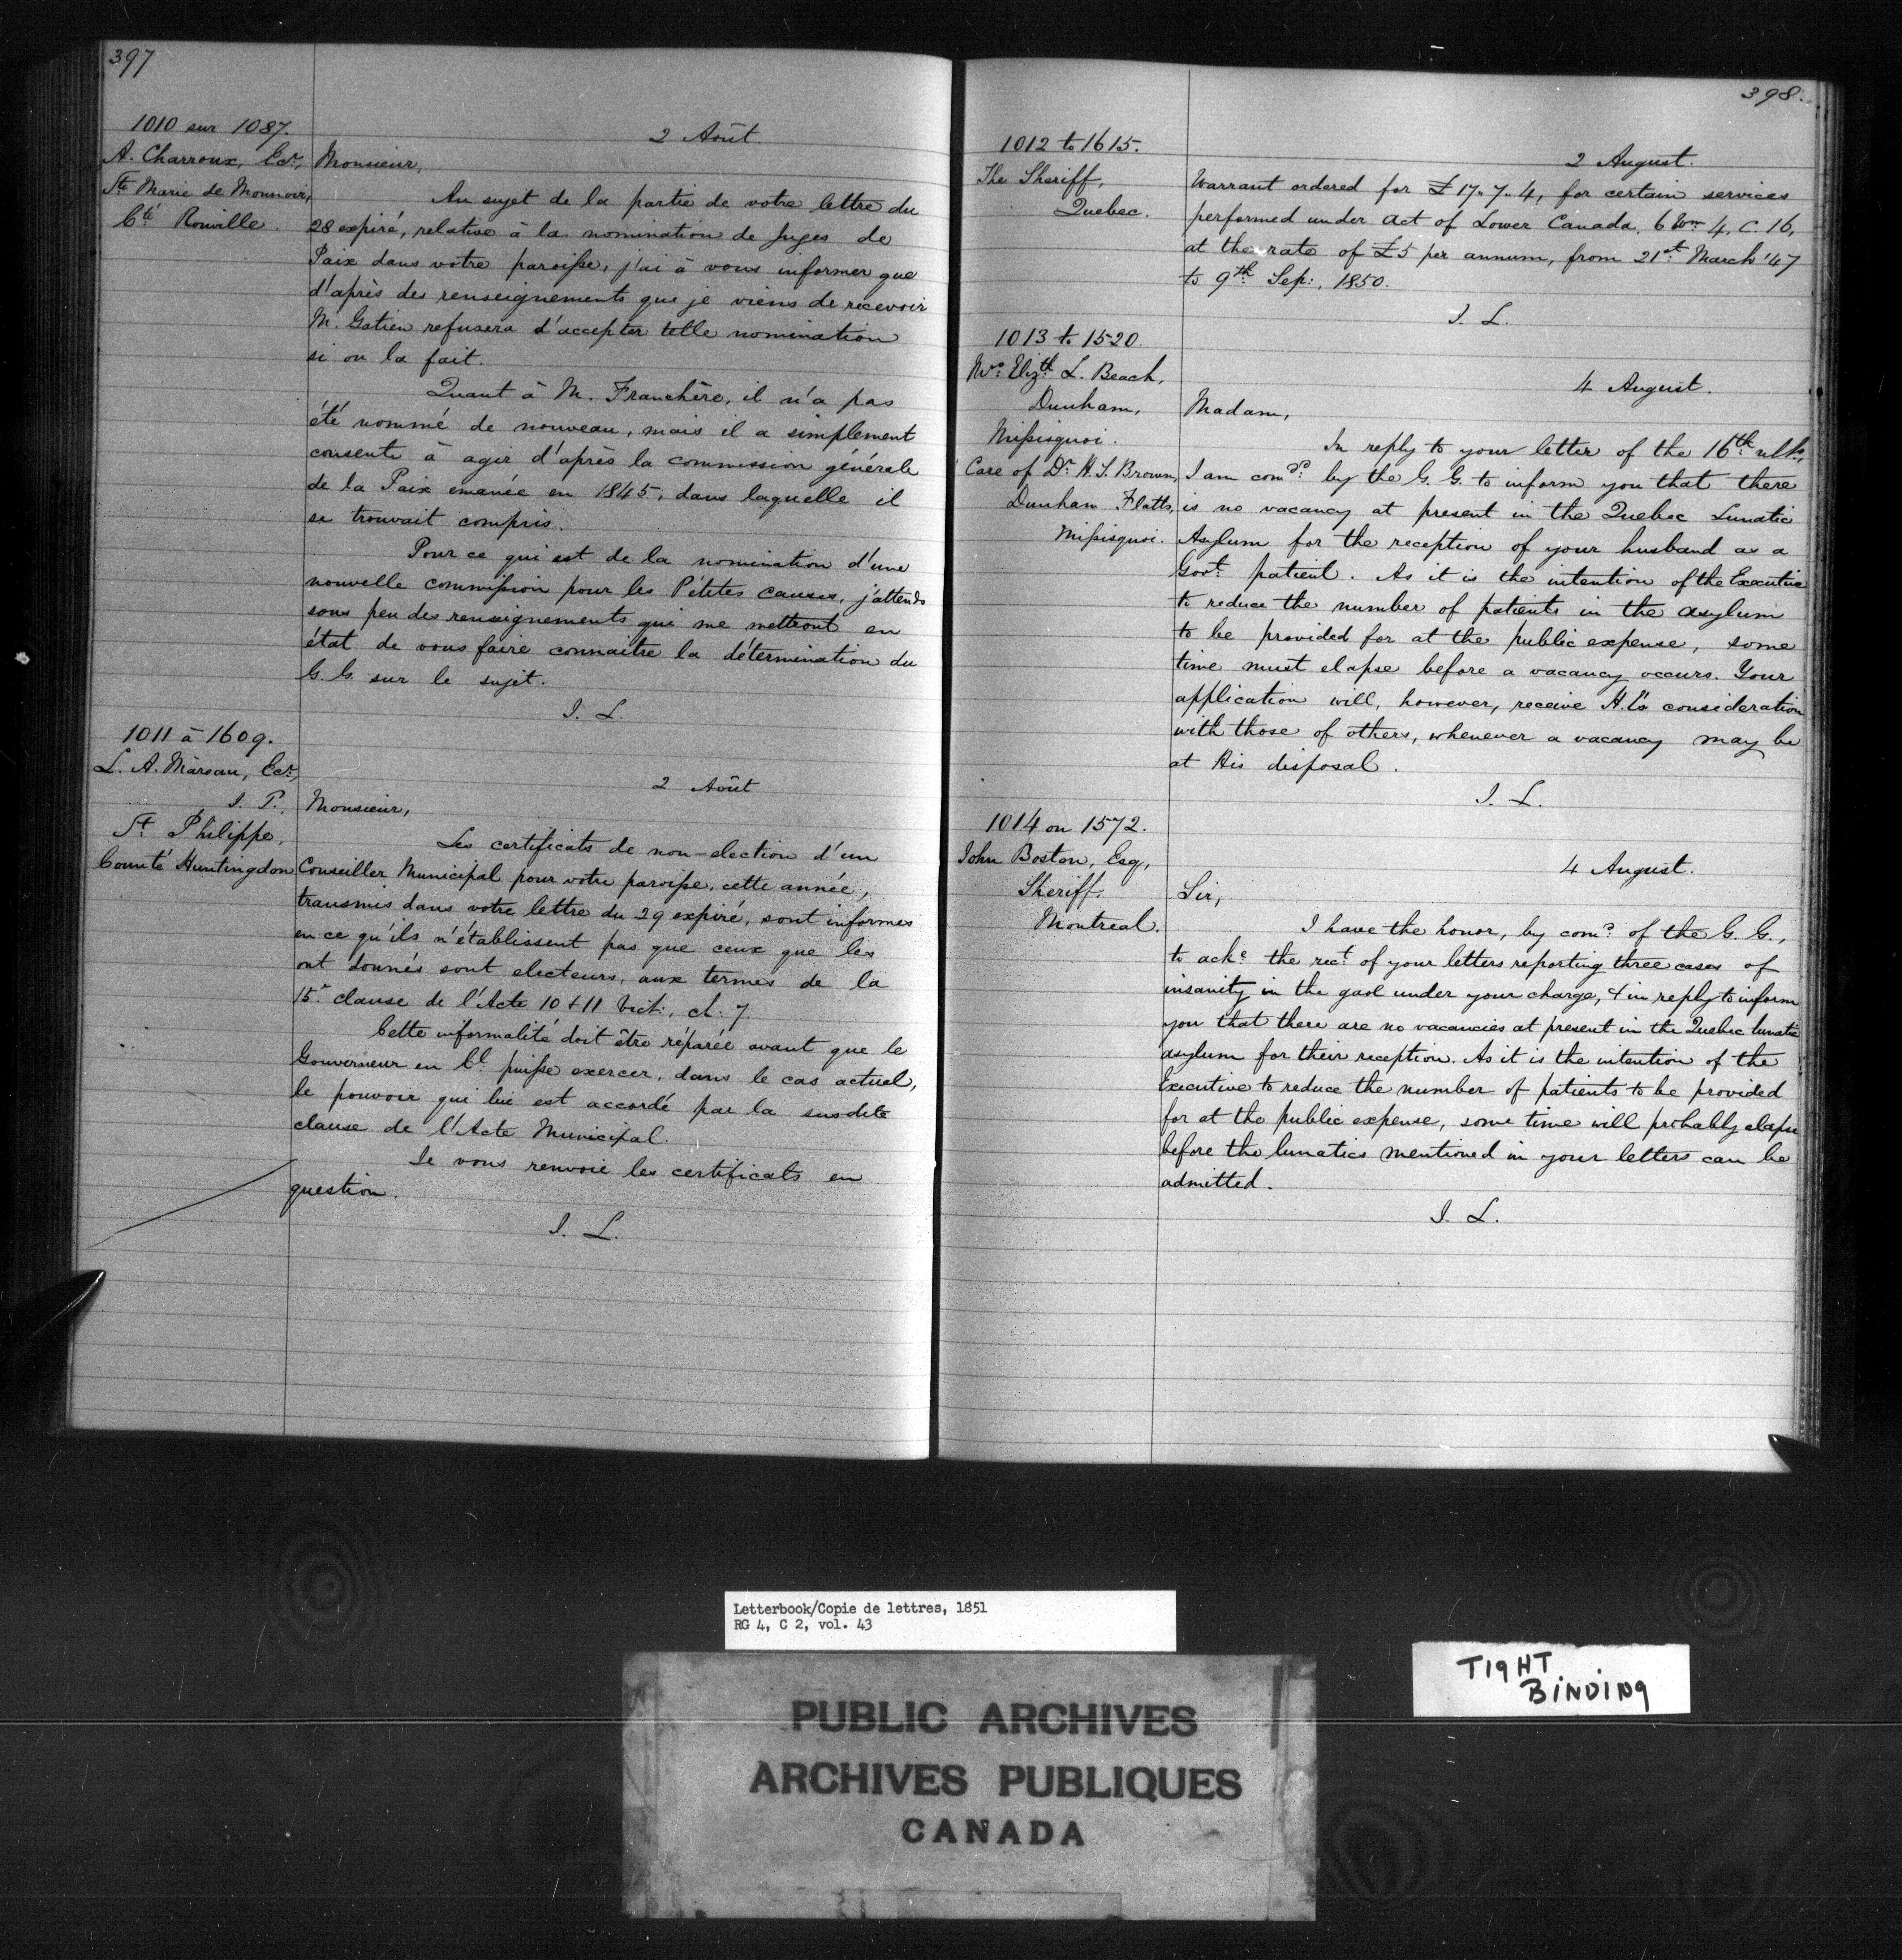 397
1010 sur 1087.
A. Charroux, Ecr,
Ste Marie de Monnoir,
Cté Rouville.
2 Août.
Monsieur,
Au sujet de la partie de votre lettre du
28 expiré, relative à la nomination de Juges de
Paix dans votre paroisse, j'ai à vous informer que
d'après des renseignements que je viens de recevoir
M. Gatien refusera d'accepter telle nomination
si on la fait.
Quant à M. Franchère, il n'a pas
été nommé de nouveau, mais il a simplement
consenti à agir d'après la commission générale
de la Paix émanée en 1845, dans laquelle il
se trouvait compris.
Pour ce qui est de la nomination d'une
nouvelle commission pour les Petites causes, j'attends
sous peu des renseignements qui me mettront en
état de vous faire connaitre la détermination du
G. G. sur le sujet.
J. L.
1011 à 1609.
L. A. Màreau, Ecr,
J. P.,
St Philippe,
Comté Huntingdon
2 Août
Monsieur,
Les certificats de non-election d'un
Conseiller Municipal pour votre paroisse, cette année,
transmis dans votre lettre du 29 expiré, sont informes
en ce qu'ils n'établissent pas que ceux que les
ont donnés sont electeurs, aux termes de la
15e clause de l'Acte 10 & 11 Vict:, ch: 7.
Cette informalité doit être réparée avant que le
Gouverneur en Cl puisse exercer, dans le cas actuel,
le pouvoir qui lui est accordé par la susdite
clause de l'Acte Municipal.
Je vous renvoie les certificats en
question.
J. L.
398.
1012 to 1615.
The Sheriff,
Quebec.
2 August.
Warrant ordered for £17.7.4, for certain services
performed under act of Lower Canada, 6 Wm 4, C. 16,
at the rate of £5 per annum, from 21st March '47
to 9th Sep:, 1850.
J. L.
1013 to 1520.
Mrs Elizth L. Beach,
Dunham,
Missisquoi.
Care of Dr H. S. Brown,
Dunham Flatts,
Missisquoi.
4 August.
Madam,
In reply to your letter of the 16th ulto,
I am comd by the G. G. to inform you that there
is no vacancy at present in the Quebec Lunatic
Asylum for the reception of your husband as a
Govt patient. As it is the intention of the Executive
to reduce the number of patients in the asylum
to be provided for at the public expense, some
time must elapse before a vacancy occurs. Your
application will, however, receive H. E's consideration
with those of others, whenever a vacancy may be
at His disposal.
J. L.
1014 on 1572.
John Boston, Esq,
Sheriff.
Montreal.
4 August.
Sir,
I have the honor, by comd of the G. G.,
to acke the rect of your letters reporting three cases of
insanity in the gaol under your charge, & in reply to inform
you that there are no vacancies at present in the Quebec lunatic
asylum for their reception. As it is the intention of the
Executive to reduce the number of patients to be provided
for at the public expense, some time will probably elapse
before the lunatics mentioned in your letters can be
admitted.
J. L.
Letterbook/Copie de lettres, 1851
RG 4, C 2, vol. 43
TIGHT
BINDING
PUBLIC ARCHIVES
ARCHIVES PUBLIQUES
CANADA